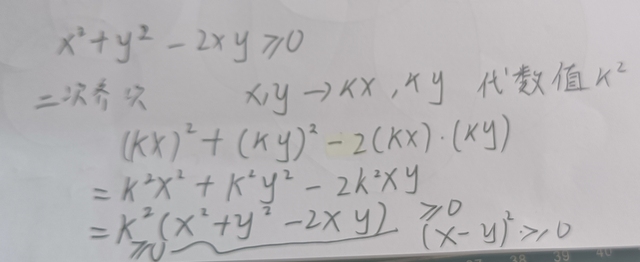 x²+y²-2xy≥0
二次齐次 x,y→kx,ky 代数值k²
(kx)²+(ky)²-2(kx)·(ky)
=k²x²+k²y²-2k²xy
=k²(x²+y²-2xy) ≥0
≥0 (x-y)²≥0
38 39 40